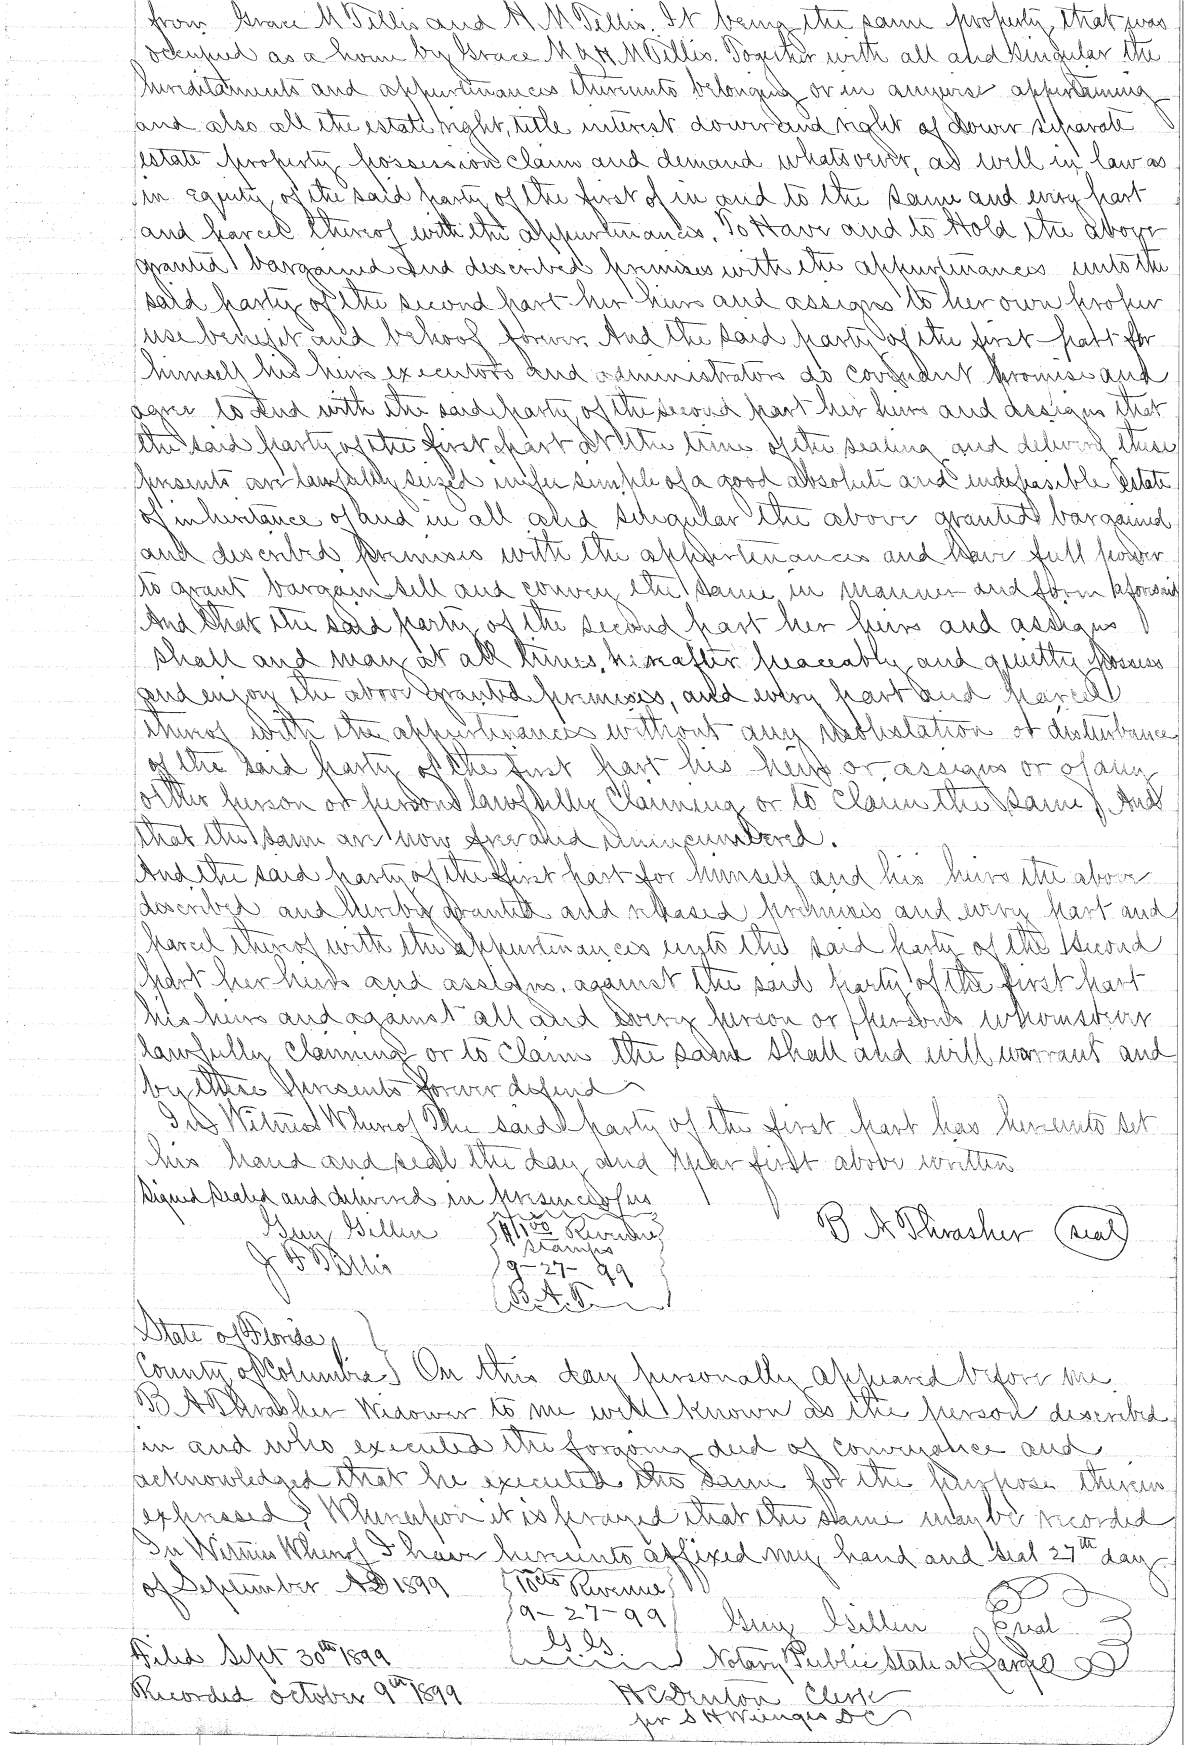 from Grace M Tillis and H M Tillis. It being the same property that was
occupied as a home by Grace M & H M Tillis. Together with all and singular the
hereditaments and appurtinances thereunto belonging or in anywise appertaining
and also all the estate right, title interest dower and right of dower separate
estate property possession claim and demand whatsoever, as well in law as
in equity of the said party of the first of in and to the same and every part
and parcel thereof with the appurtinances. To Have and to Hold the above
granted bargained and described premises with the appurtinances unto the
said party of the second part her heirs and assigns to her own proper
use benefit and behoof forever. And the said party of the first part for
himself his heirs executors and administrators do covenant promise and
agree to and with the said party of the second part her heirs and assigns that
the said party of the first part at the time of the sealing and delivery these
presents are lawfully seized in fee simple of a good absolute and indefeasible Estate
of inheritance of and in all and singular the above granted bargained
and described premises with the appurtinances and have full power
to grant bargain sell and convey the same in manner and form aforesaid
And that the said party of the second part her heirs and assigns
shall and may at all times hereafter peaceably and quietly possess
and enjoy the above granted premises, and every part and parcel
thereof with the appurtinances without any molistation or disturbance
of the said party of the first part his heirs or assigns or of any
other person or persons lawfully claiming or to claim the same, And
that the same are now free and unincumbered.
And the said party of the first part for himself and his heirs the above
described and hereby granted and released premises and every part and
parcel thereof with the appurtinances unto the said party of the second
part her heirs and assigns. against the said party of the first part
his heirs and against all and every person or persons whomsoever
lawfully claiming or to claim the same shall and will warrant and
by these presents forever defend
In Witness Whereof The said party of the first part has hereunto set
his hand and seal the day and year first above written
Signed Sealed and delivered in presence of us
Guy Gillen $1.00 Revenue B A Thrasher seal
J F Tillis Stamps
9-27-99
B.A.T.
State of Florida
County of Columbia } On this day personally appeared before me
B A Thrasher Widower to me well known as the person described
in and who executed the forgoing deed of conveyance and
acknowledged that he executed the same for the purpose therein
expressed, Whereupon it is prayed that the same may be recorded
In Witness Whereof I have hereunto affixed my hand and seal 27th day
of September AD 1899 10cts Revenue
9-27-99 Guy Gillen Seal
G.G.
Filed Sept 30th 1899 Notary Public State at Large
Recorded October 9th 1899 H C Denton Clerk
per S H DC